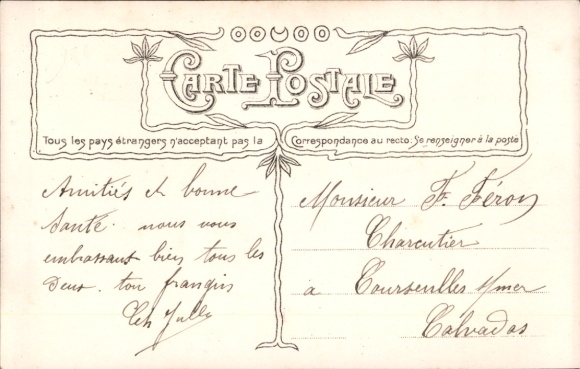 CARTE POSTALE
Tous les pays étrangers n'acceptant pas la Correspondance au recto. Se renseigner à la poste
Amitiés et bonne
Santé. nous vous
embrassons bien tous les
deux. ton frangin
Monsieur F. Féron
Charcutier
à Courseulles s/mer
Calvados